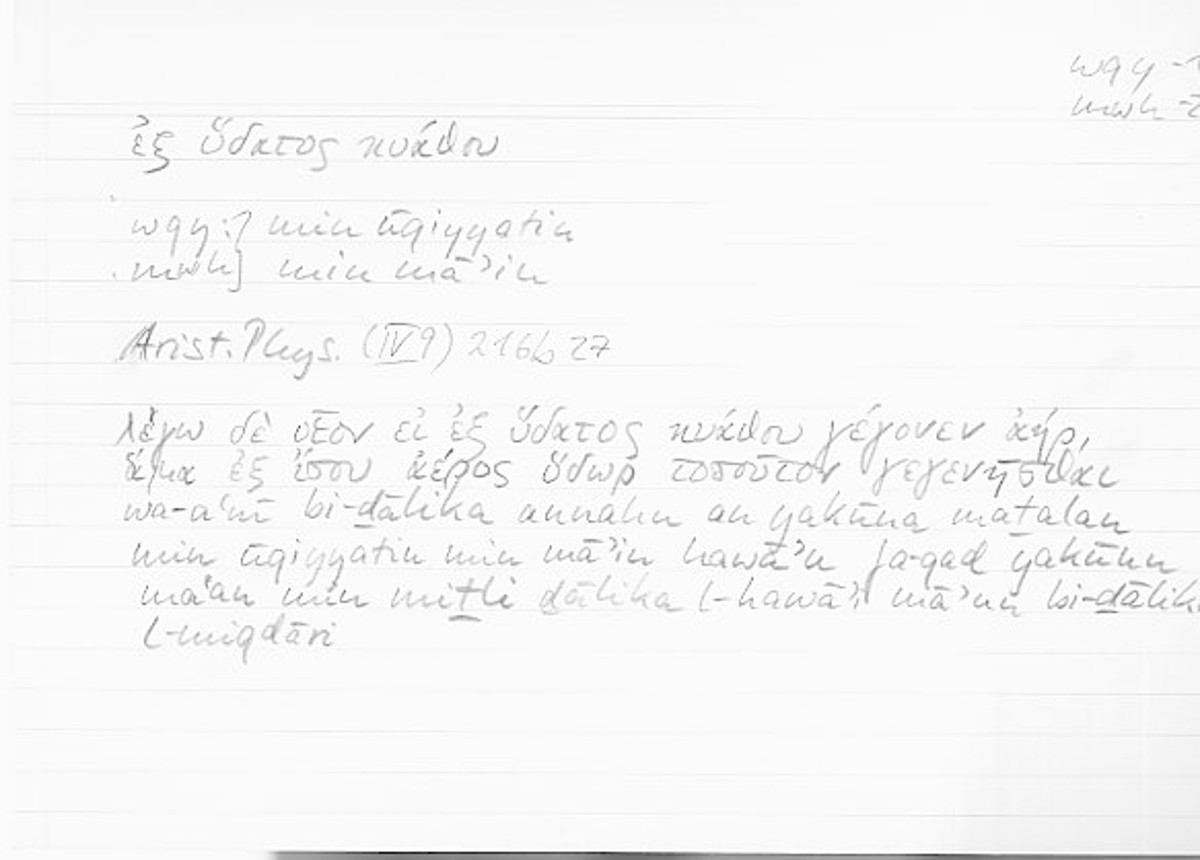 wqy
mwh
ἐξ ὕδατος κυάθου
wqy:] min ūqiyyatin
mwh] min māʾin
Arist. Phys. (IV 9) 216b27
λέγω δὲ οἷον εἰ ἐξ ὕδατος κυάθου γέγονεν ἀήρ,
ἅμα ἐξ ἴσου ἀέρος ὕδωρ τοσοῦτον γεγενῆσθαι
wa-aʿnī bi-ḏālika annahu an yakūna maṯalan
min ūqiyyatin min māʾin hawāʾu fa-qad yakūnu
maʿan min miṯli ḏālika l-hawāʾi māʾun bi-ḏālika
l-miqdāri